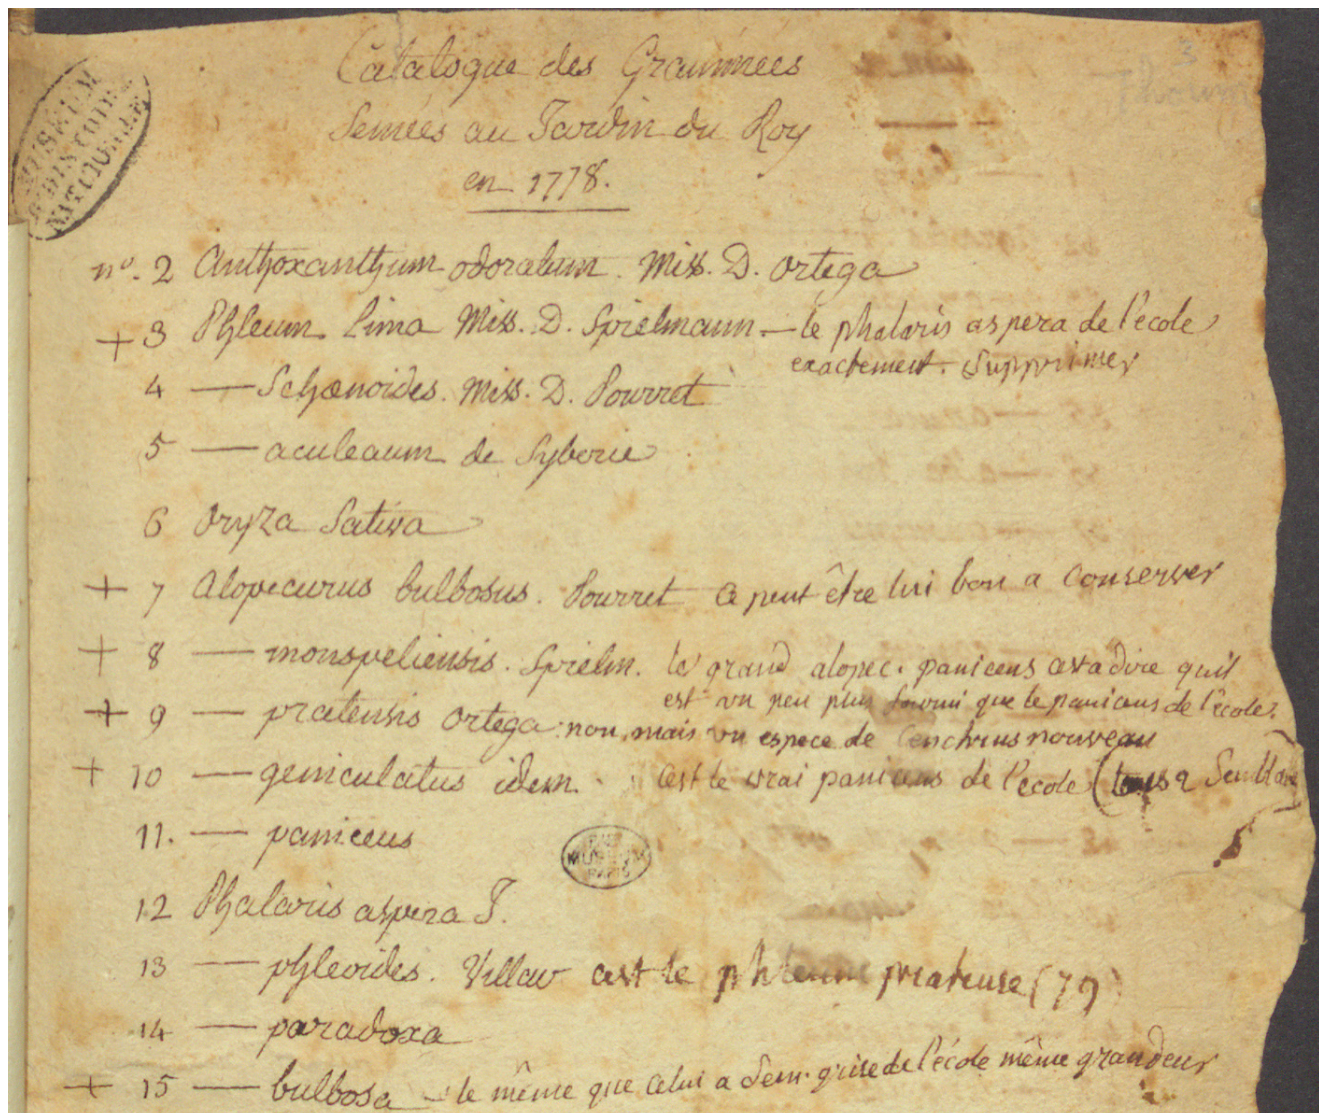 Catalogue des Graminées
Semées au Jardin du Roy
en 1778.
MUSEUM
D'HISTOIRE
NATURELLE
3
nº. 2 Anthoxanthum odoratum. Miss. D. Ortega
+ 3 Phleum Lima Miss. D. Spielmann — le phalaris aspera de l'école
exactement. Supprimer
4 — Schænoides. Miss. D. Pourret
5 — aculeaum de Syberie
6 Oryza Sativa
+ 7 Alopecurus bulbosus. Pourret ce peut être lui bon a Conserver
+ 8 — monspeliensis. Spielm. le grand alopec. paniceus cest a dire quil
est un peu plus fourni que le paniceus de l'école.
+ 9 — pratensis Ortega: non, mais un espece de Cenchrus nouveau
+ 10 — geniculatus idem. cest le vrai paniceus de l'école (
11. — paniceus
MUSEUM
PARIS
12 Phalaris aspera J.
13 — phleoides. Villar cest le phleum (79)
14 — paradoxa
+ 15 — bulbosa — le même que celui a de l'école même grandeur